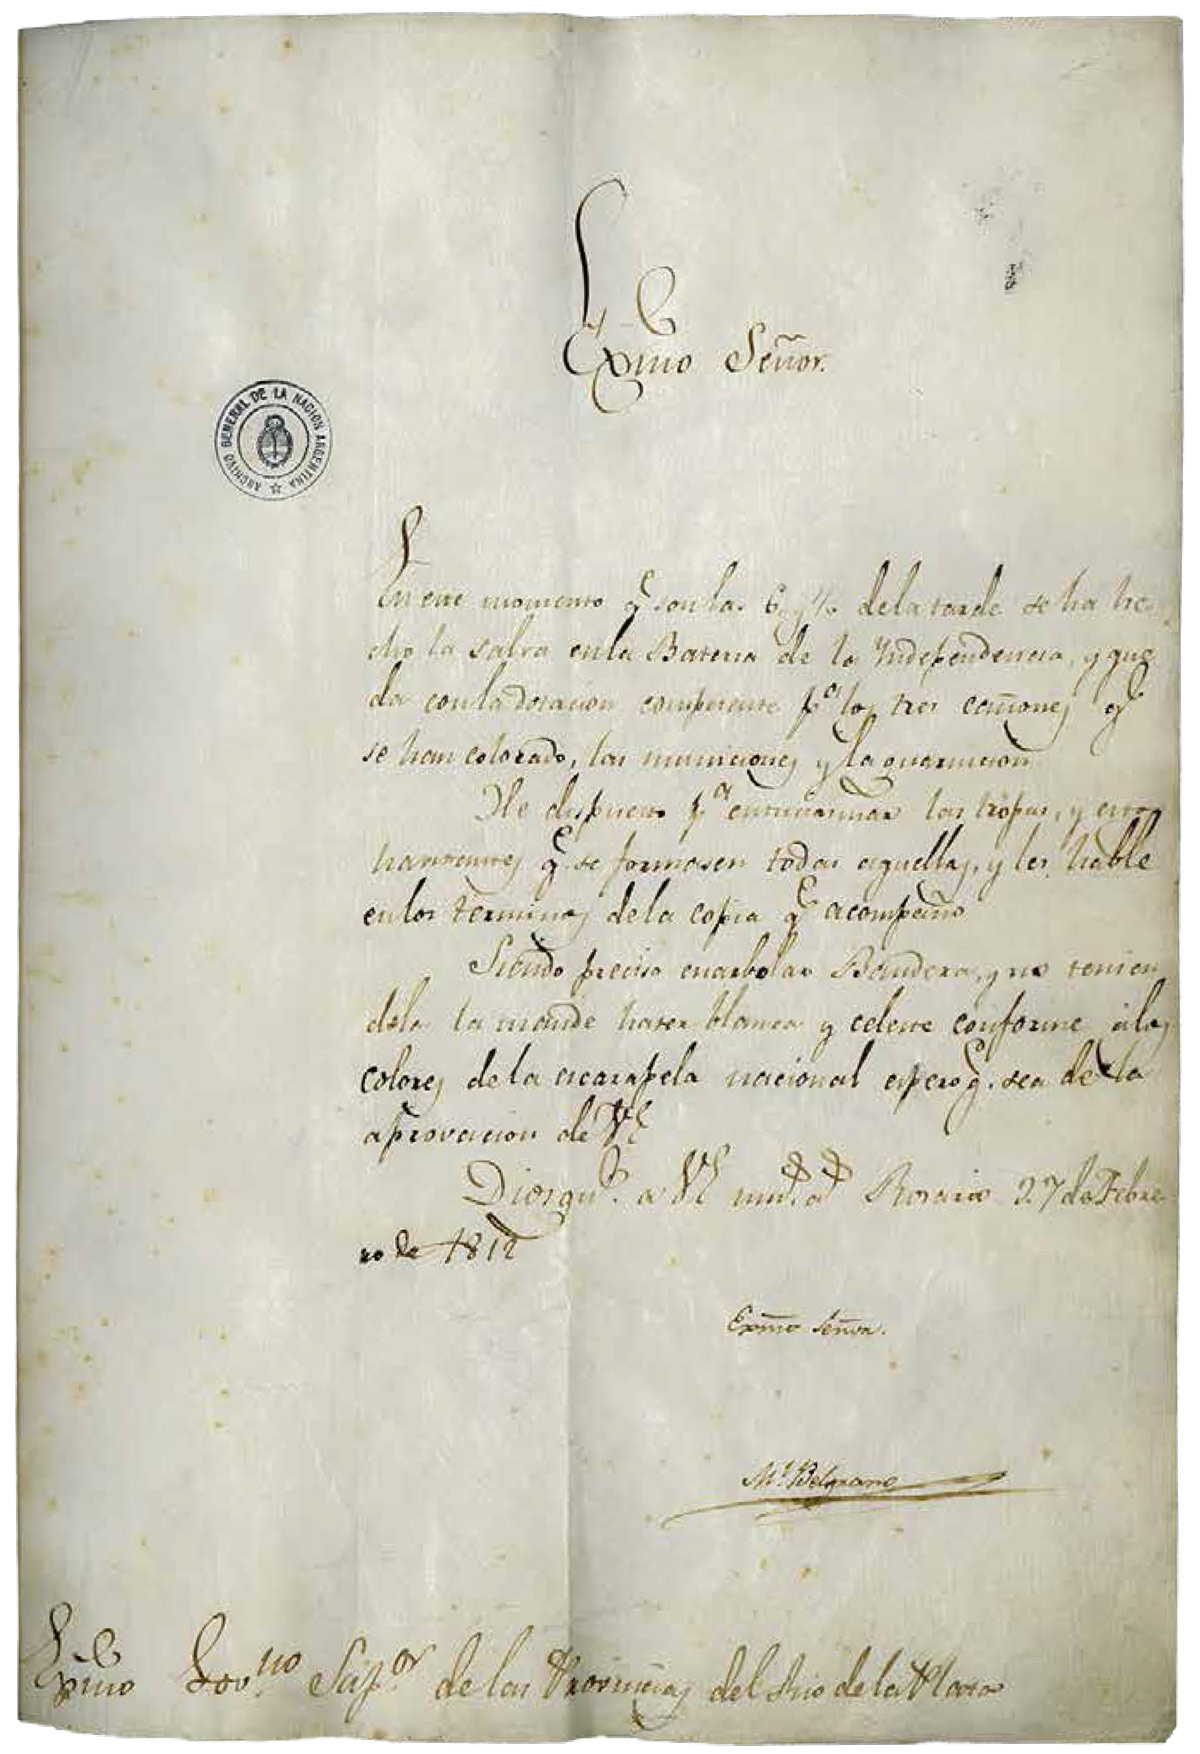 Exmo Señor.
ARCHIVO GENERAL DE LA NACION ARGENTINA
En este momento q.e son las 6 y ½ de la tarde se ha he-
cho la salva en la Bateria de la Independencia, y que
da con la dotacion competente p.a los tres cañones q.e
se han colocado, las municiones y la guarnicion
He dispuesto p.a entusiasmar las tropas, y estos
havitantes q.e se formasen todas aquellas, y les hablé
en los terminos de la copia q.e acompaño
Siendo preciso enarbolar Bandera, y no tenien
dola la mandé hacer blanca y celeste conforme á los
colores de la escarapela nacional espero q.e sea de la
aprovacion de VE
Dios gu.e a VE m.s a.s Rosario 27 de Febre
ro de 1812
Exmo Señor.
M.l Belgrano
Exmo Gov.no Sup.or de las Provincias del Rio de la Plata